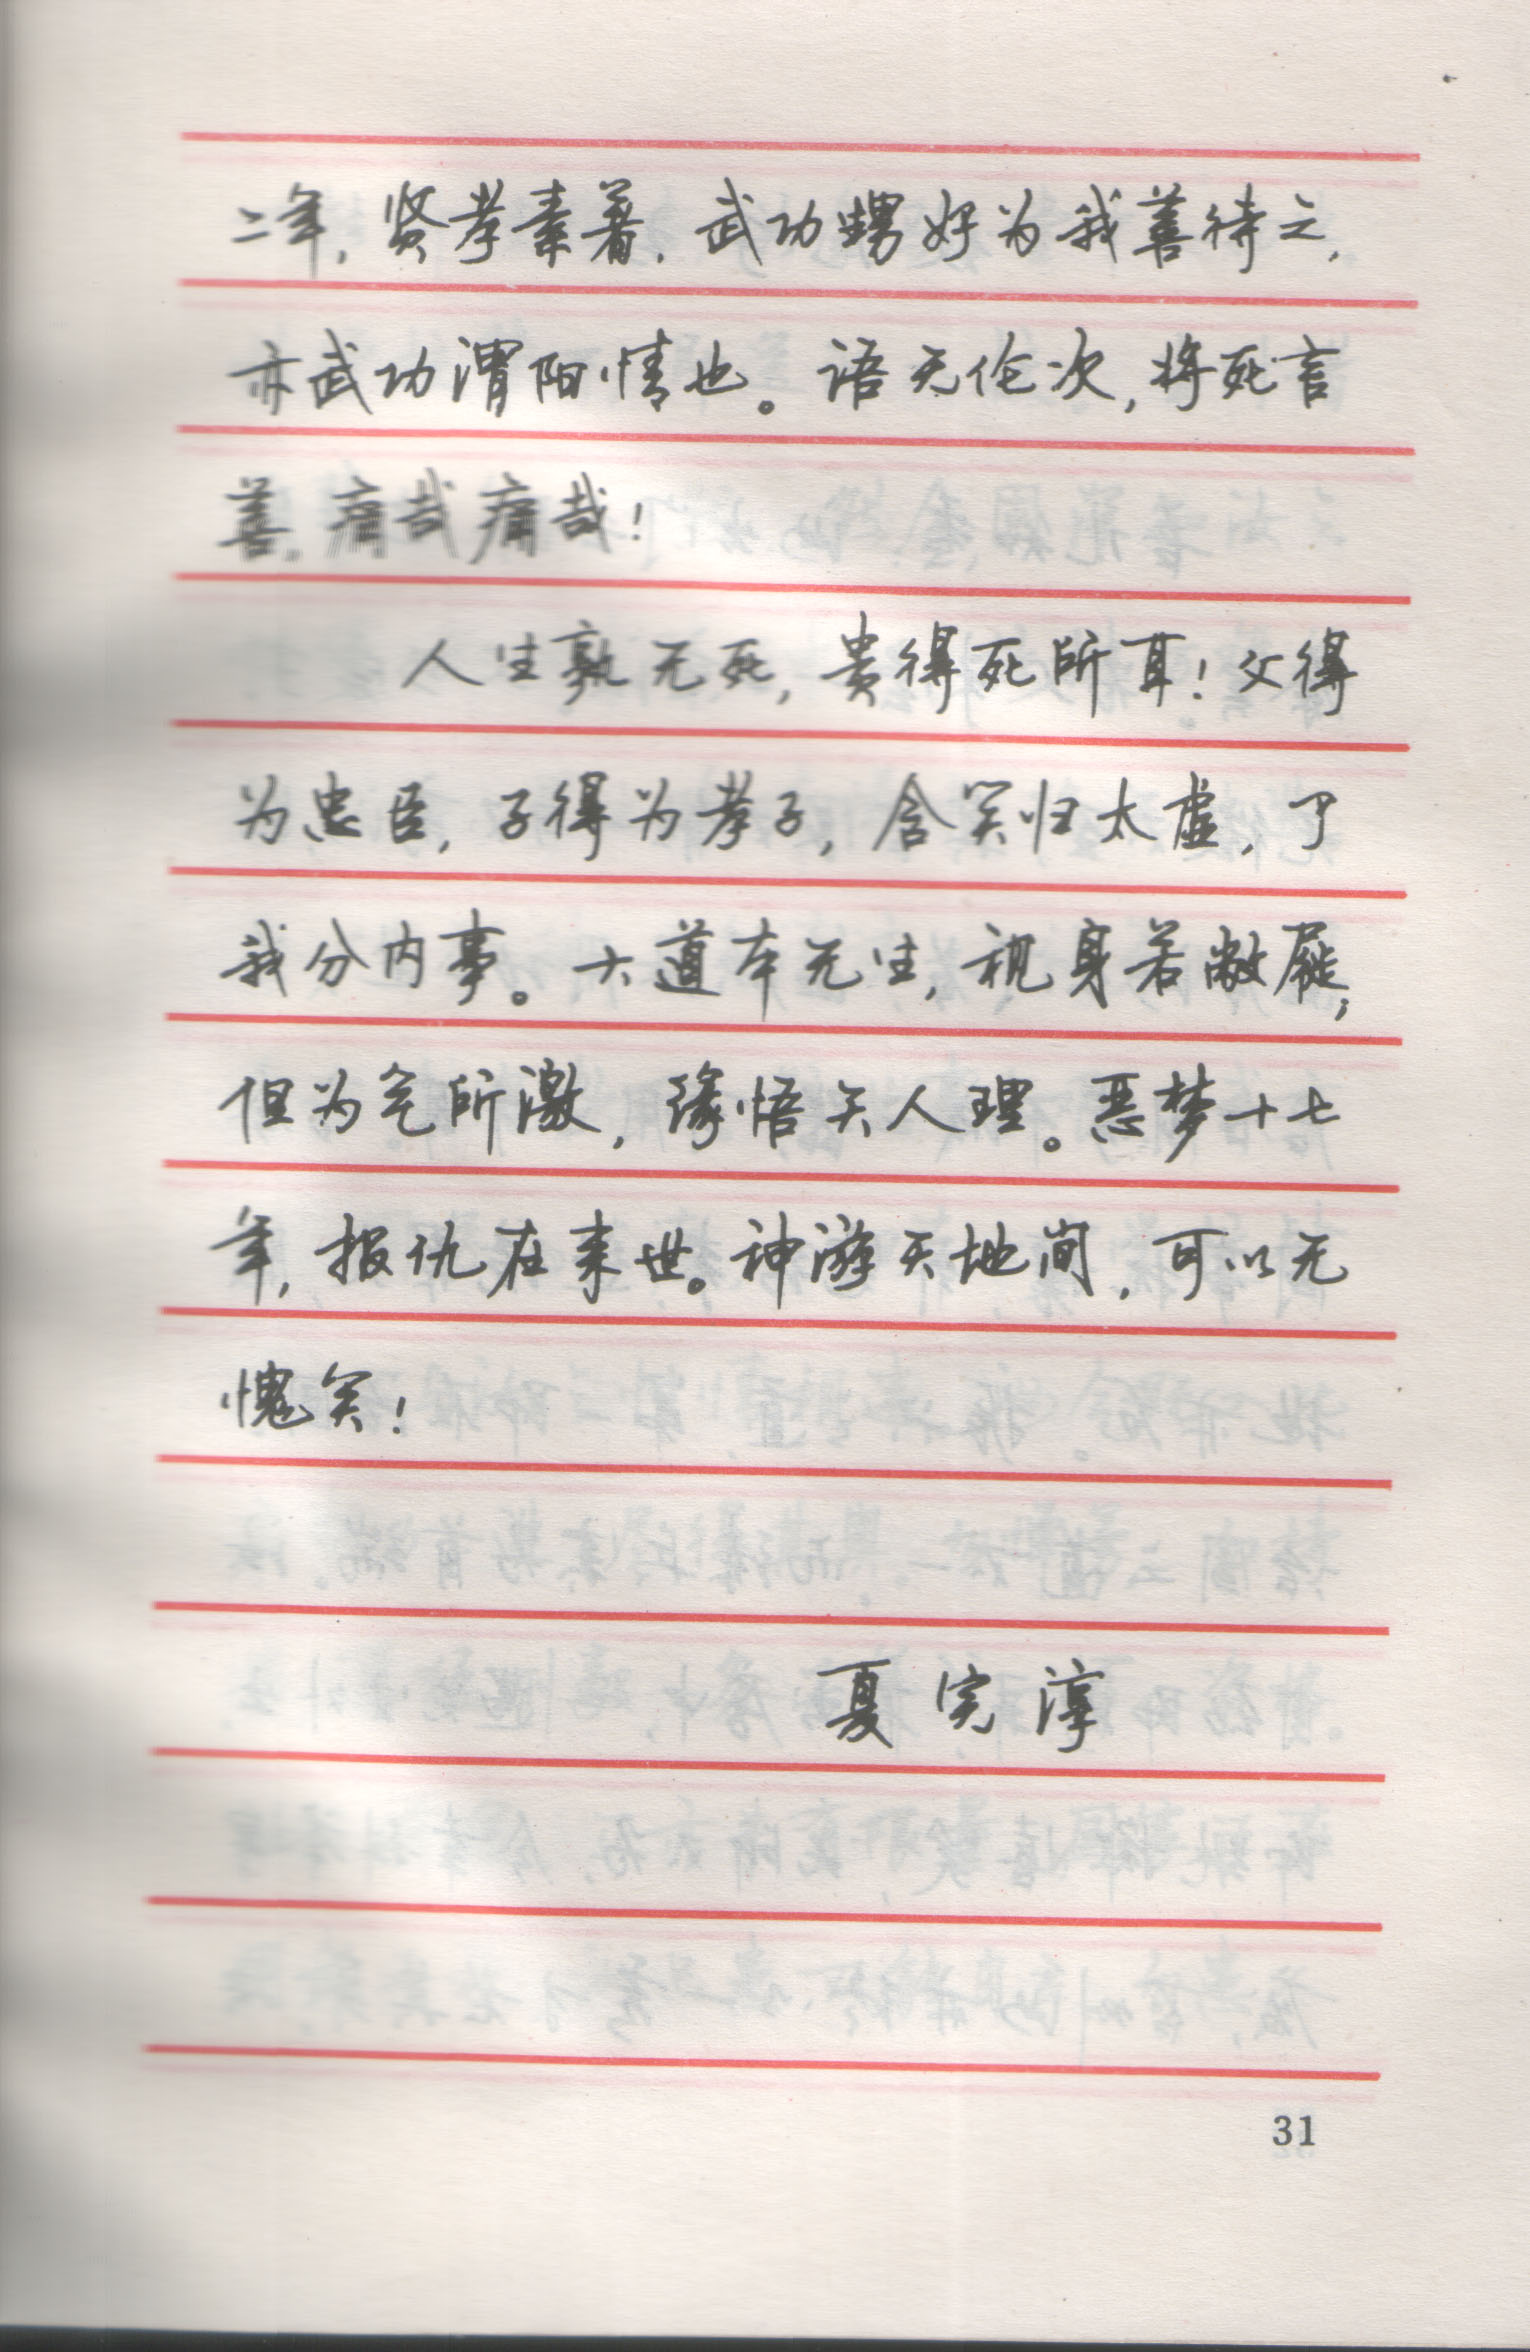 二年，贤孝素著，武功甥好为我善待之，
亦武功渭阳情也。语无伦次，将死言
善，痛哉痛哉！
人生孰无死，贵得死所耳！父得
为忠臣，子得为孝子，含笑归太虚，了
我分内事。大道本无生，视身若敝屣，
但为气所激，缘悟天人理。恶梦十七
年，报仇在来世。神游天地间，可以无
愧矣！
夏完淳
31